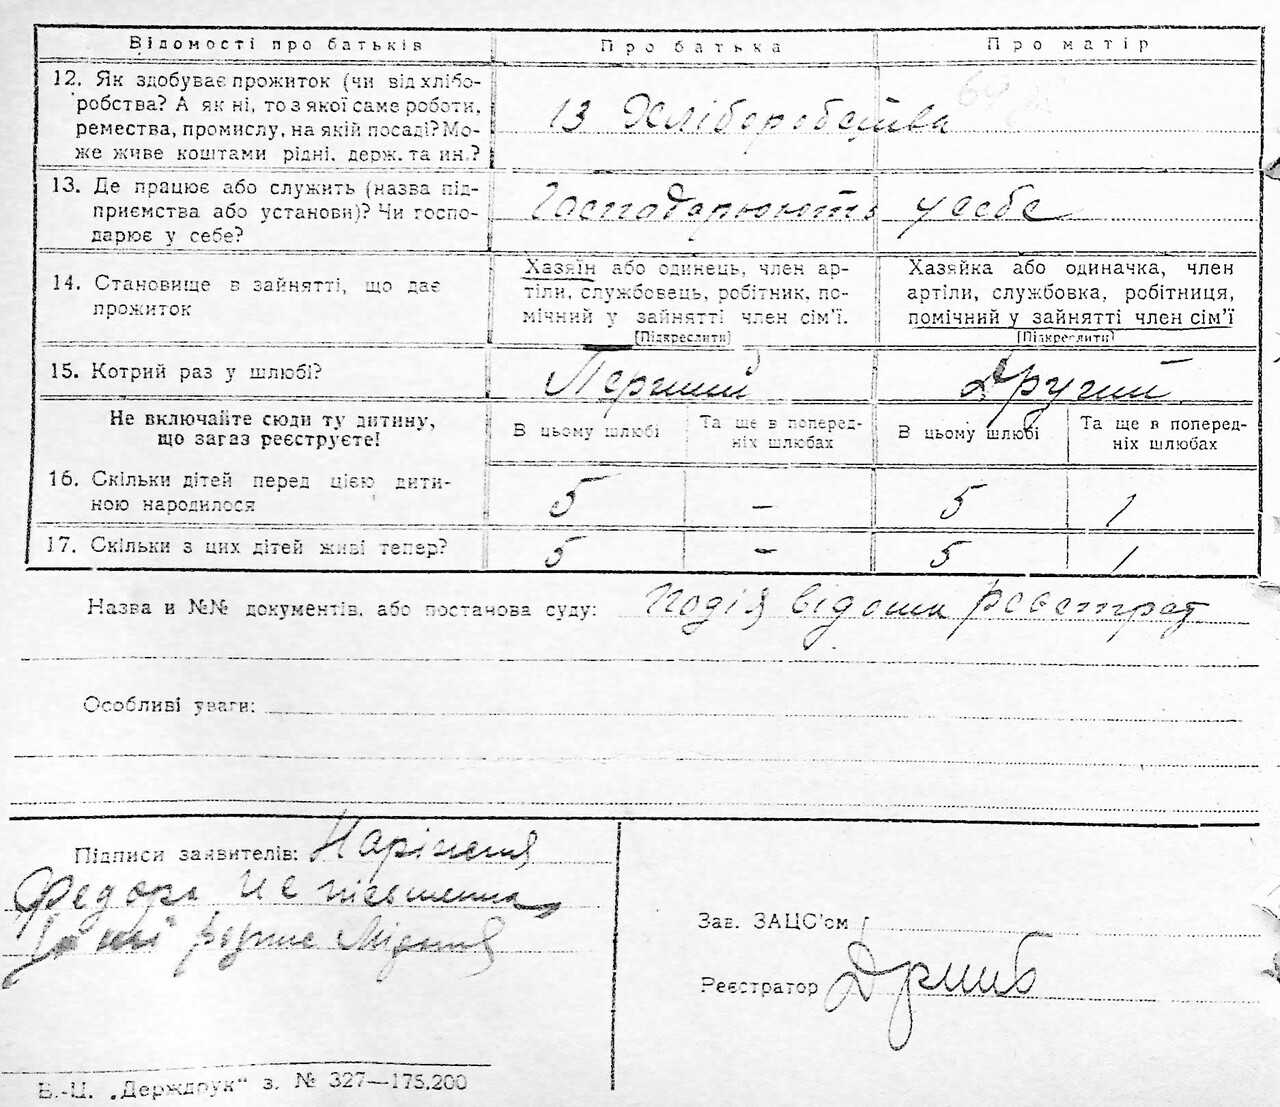 Відомості про батьків Про батька Про матір
12. Як здобуває прожиток (чи від хлібо-
робства? А як ні, то з якої саме роботи,
ремества, промислу, на якій посаді? Мо-
же живе коштами рідні, держ. та ин.?
Із Хліборобства
13. Де працює або служить (назва під-
приємства або установи)? Чи госпо-
дарює у себе?
Господарюють у себе
14. Становище в зайнятті, що дає
прожиток
Хазяїн або одинець, член ар-
тіли, службовець, робітник, по-
мічний у зайнятті член сім'ї.
[Підкреслити]
Хазяйка або одиначка, член
артіли, службовка, робітниця,
помічний у зайнятті член сім'ї
[Підкреслити]
15. Котрий раз у шлюбі? Перший Другий
Не включайте сюди ту дитину,
що зараз реєструєте!
В цьому шлюбі
Та ще в поперед-
ніх шлюбах
В цьому шлюбі
Та ще в поперед-
ніх шлюбах
16. Скільки дітей перед цією дити-
ною народилося
5 - 5 1
17. Скільки з цих дітей живі тепер? 5 - 5 1
Назва и №№ документів, або постанова суду: Подія відома реєстрат
Особливі уваги:
Підписи заявителів:
Федора
Зав. ЗАЦС'ом
Реєстратор
В.-Ц. „Держдрук" з. № 327—175.200